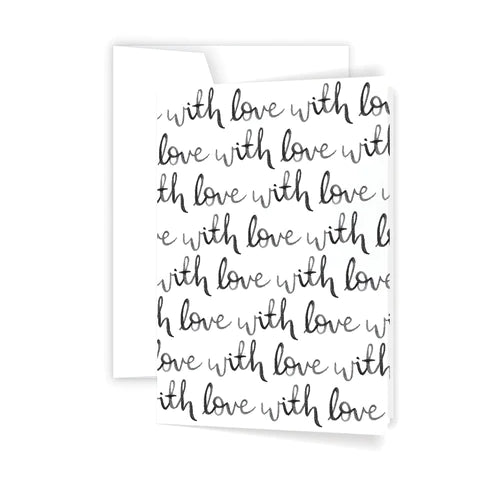 with love with lo
love with love with
th love with love
e with love with l
with love with love
h love with love wi
love with love with
ith love with love